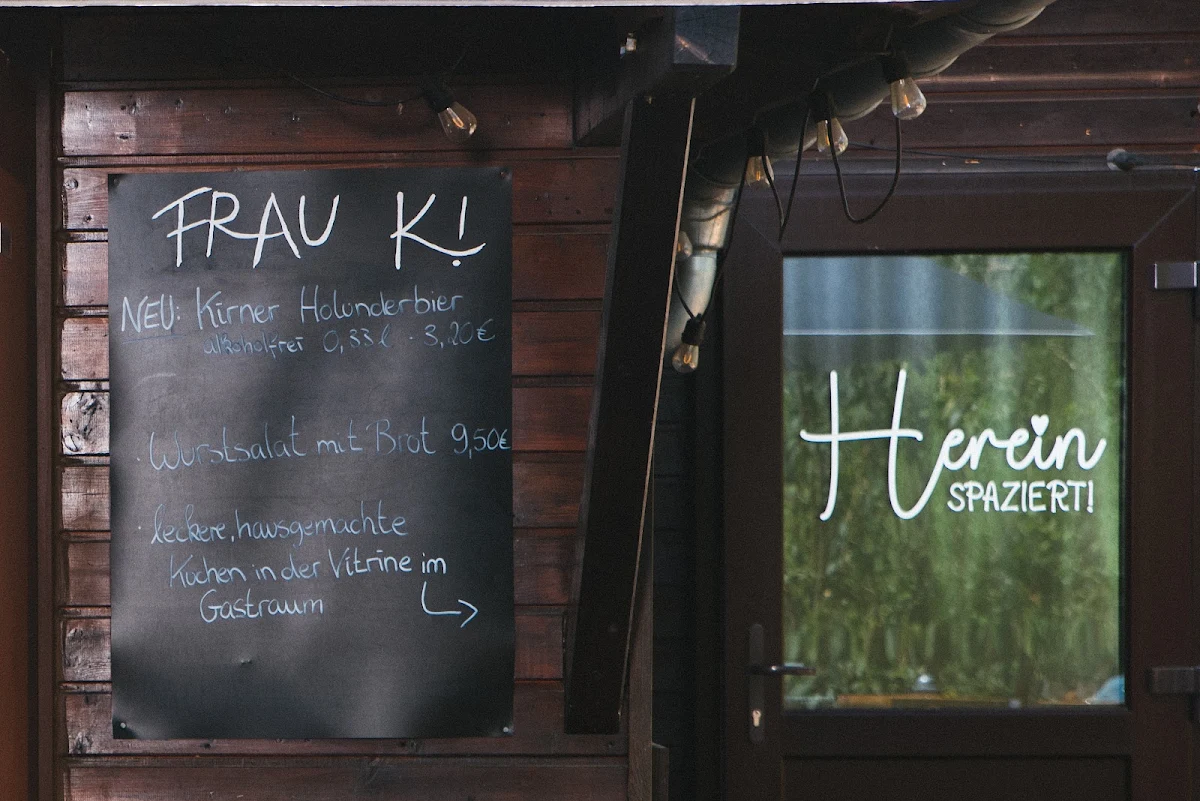 FRAU K!
NEU: Kirner Holunderbier
alkoholfrei 0,33l · 3,20€
· Wurstsalat mit Brot 9,50€
· leckere, hausgemachte
Kuchen in der Vitrine im
Gastraum
Herein
SPAZIERT!